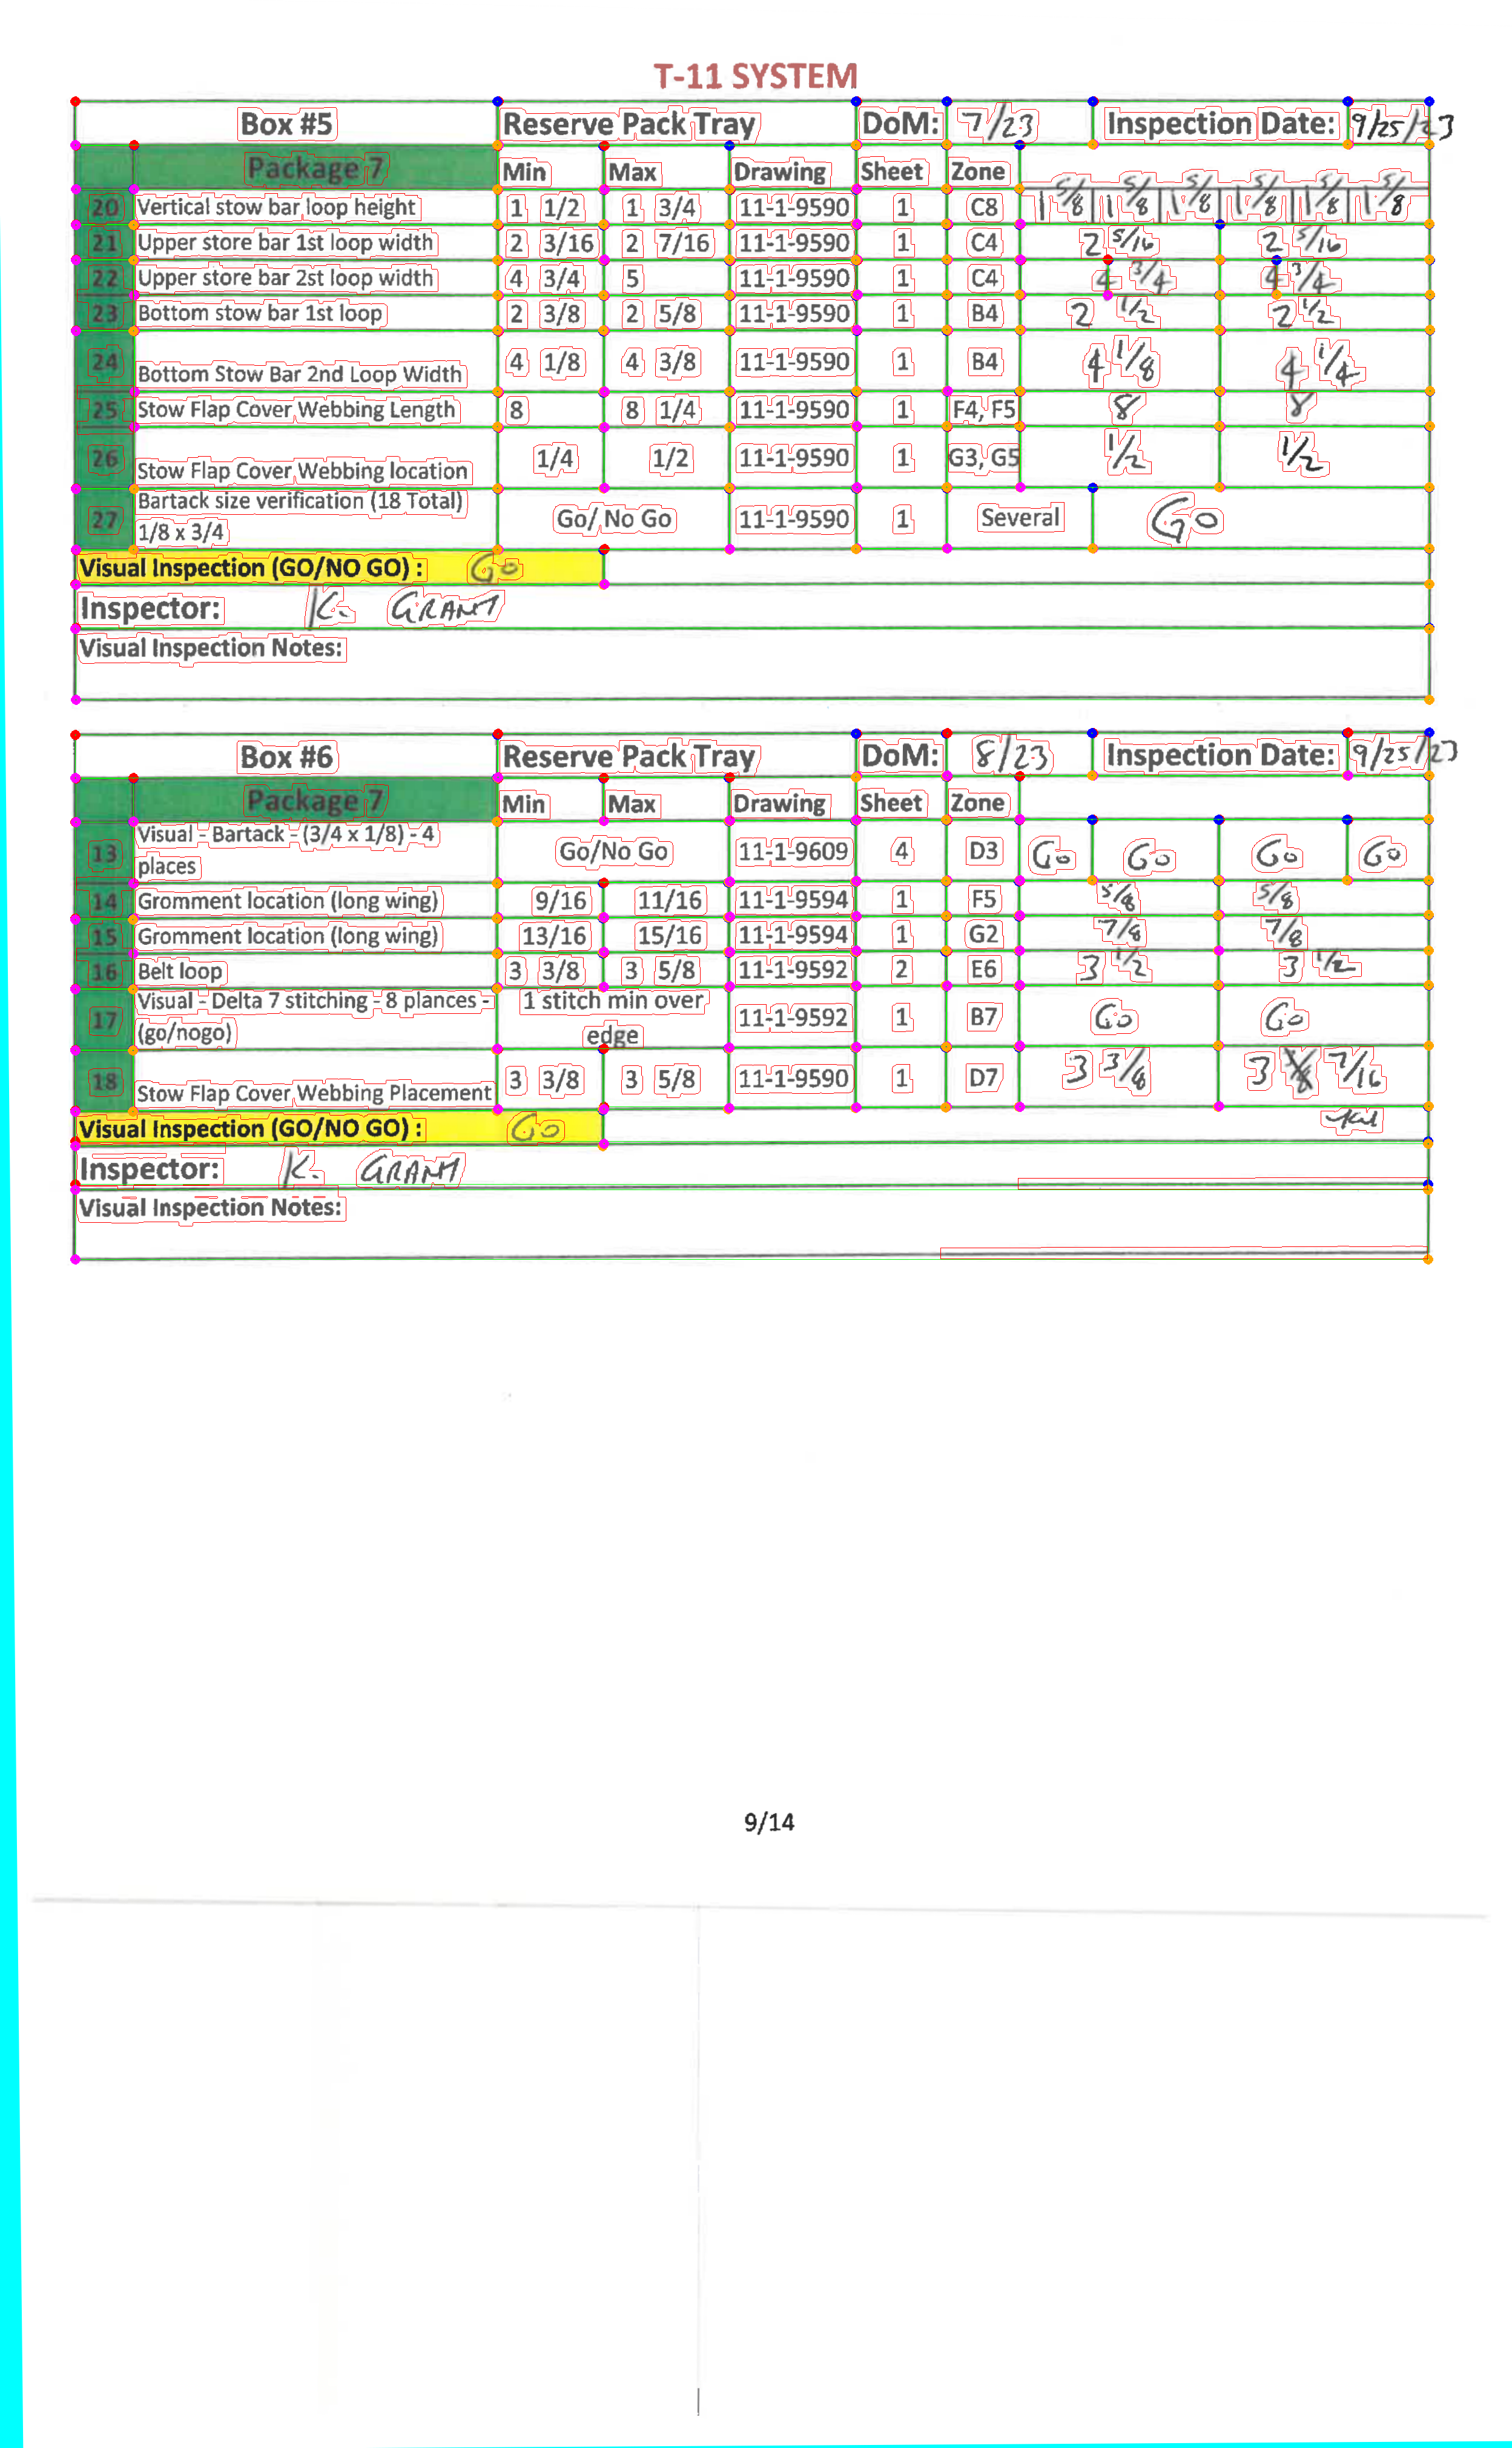 T-11 SYSTEM
Box #5 Reserve Pack Tray DoM: 7/23 Inspection Date: 9/25/23
Package 7 Min Max Drawing Sheet Zone
20 Vertical stow bar loop height 1 1/2 1 3/4 11-1-9590 1 C8 1 5/8 1 5/8 1 5/8 1 5/8 1 5/8 1 5/8
21 Upper store bar 1st loop width 2 3/16 2 7/16 11-1-9590 1 C4 2 5/16 2 5/16
22 Upper store bar 2st loop width 4 3/4 5 11-1-9590 1 C4 4 3/4 4 3/4
23 Bottom stow bar 1st loop 2 3/8 2 5/8 11-1-9590 1 B4 2 1/2 2 1/2
24 Bottom Stow Bar 2nd Loop Width 4 1/8 4 3/8 11-1-9590 1 B4 4 1/8 4 1/4
25 Stow Flap Cover Webbing Length 8 8 1/4 11-1-9590 1 F4, F5 8 8
26 Stow Flap Cover Webbing location 1/4 1/2 11-1-9590 1 G3, G5 1/2 1/2
27 Bartack size verification (18 Total) 1/8 x 3/4 Go/ No Go 11-1-9590 1 Several Go
Visual Inspection (GO/NO GO) : Go
Inspector: K. GRANT
Visual Inspection Notes:
Box #6 Reserve Pack Tray DoM: 8/23 Inspection Date: 9/25/23
Package 7 Min Max Drawing Sheet Zone
13 Visual - Bartack - (3/4 x 1/8) - 4 places Go/No Go 11-1-9609 4 D3 Go Go Go Go
14 Gromment location (long wing) 9/16 11/16 11-1-9594 1 F5 5/8 5/8
15 Gromment location (long wing) 13/16 15/16 11-1-9594 1 G2 7/8 7/8
16 Belt loop 3 3/8 3 5/8 11-1-9592 2 E6 3 1/2 3 1/2
17 Visual - Delta 7 stitching - 8 plances - (go/nogo) 1 stitch min over edge 11-1-9592 1 B7 Go Go
18 Stow Flap Cover Webbing Placement 3 3/8 3 5/8 11-1-9590 1 D7 3 3/8 3 7/16
Visual Inspection (GO/NO GO) : Go
Inspector: K. GRANT
Visual Inspection Notes:
9/14